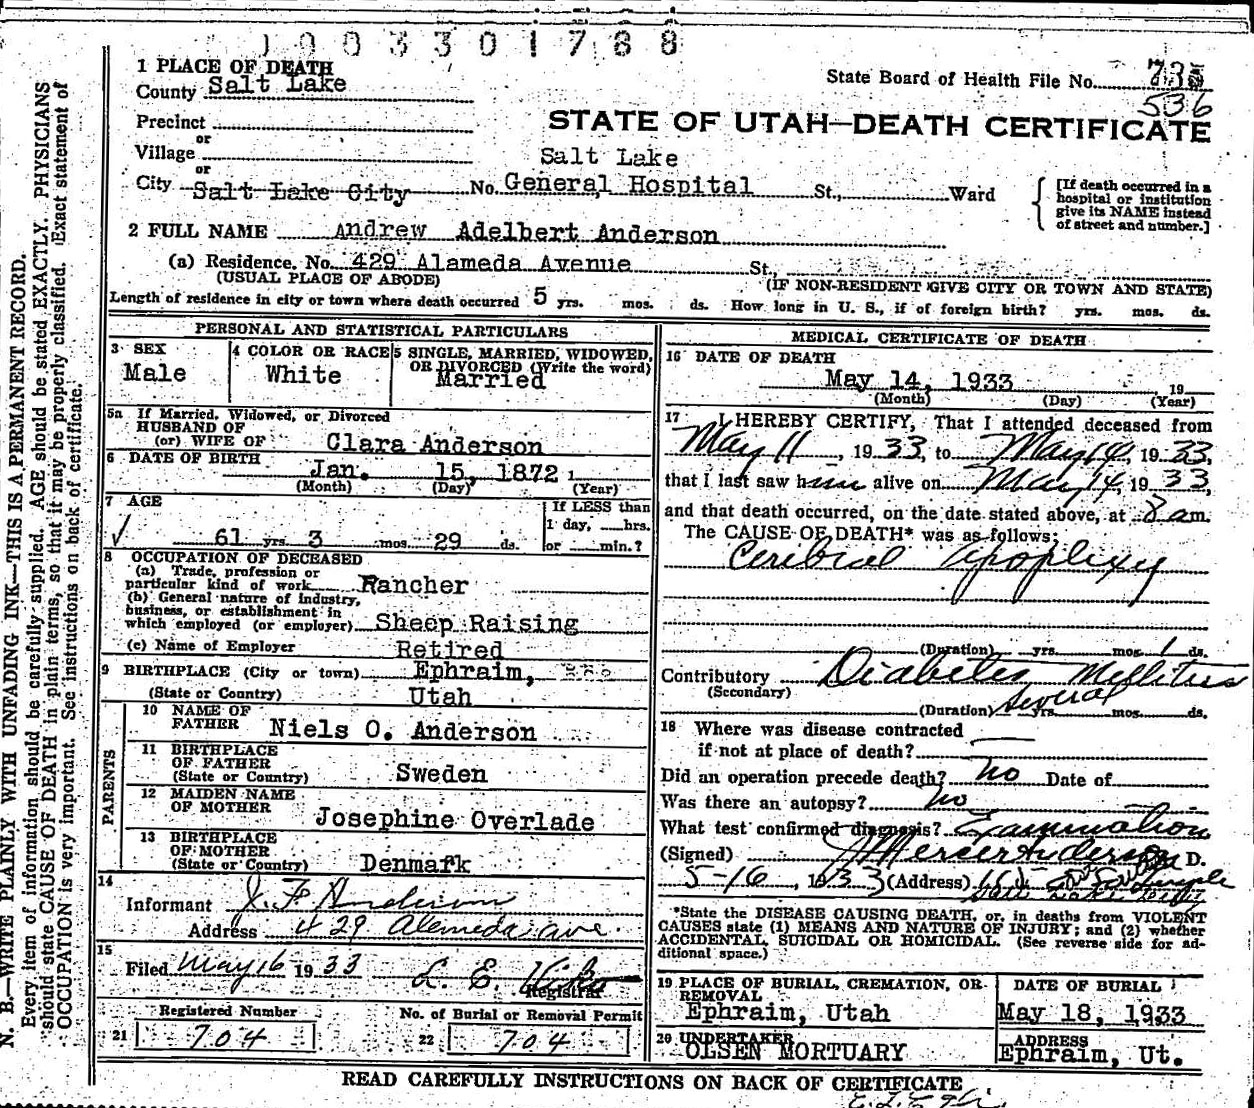 1003301788
1 PLACE OF DEATH
County Salt Lake
State Board of Health File No. 735
536
Precinct
or
Village
or
City Salt Lake City
STATE OF UTAH—DEATH CERTIFICATE
Salt Lake
No. General Hospital St., Ward
[If death occurred in a hospital or institution give its NAME instead of street and number.]
2 FULL NAME Andrew Adelbert Anderson
(a) Residence. No. 429 Alameda Avenue St.,
(USUAL PLACE OF ABODE) (IF NON-RESIDENT GIVE CITY OR TOWN AND STATE)
Length of residence in city or town where death occurred 5 yrs. mos. ds. How long in U. S., if of foreign birth? yrs. mos. ds.
PERSONAL AND STATISTICAL PARTICULARS
3 SEX
Male
4 COLOR OR RACE
White
5 SINGLE, MARRIED, WIDOWED, OR DIVORCED (Write the word)
Married
5a If Married, Widowed, or Divorced
HUSBAND OF
(or) WIFE OF Clara Anderson
6 DATE OF BIRTH
Jan. 15, 1872
(Month) (Day) (Year)
7 AGE
61 yrs. 3 mos. 29 ds.
If LESS than
1 day, hrs.
or min.?
8 OCCUPATION OF DECEASED
(a) Trade, profession or
particular kind of work Rancher
(b) General nature of industry,
business, or establishment in
which employed (or employer) Sheep Raising
(c) Name of Employer Retired
9 BIRTHPLACE (City or town) Ephraim,
(State or Country) Utah
PARENTS
10 NAME OF
FATHER Niels O. Anderson
11 BIRTHPLACE
OF FATHER
(State or Country) Sweden
12 MAIDEN NAME
OF MOTHER
Josephine Overlade
13 BIRTHPLACE
OF MOTHER
(State or Country) Denmark
14
Informant J. F. Anderson
Address 429 Alameda ave.
15
Filed May 16 1933 L. E.
Registrar
Registered Number No. of Burial or Removal Permit
21 704 22 704
MEDICAL CERTIFICATE OF DEATH
16 DATE OF DEATH
May 14, 1933 19
(Month) (Day) (Year)
17 I HEREBY CERTIFY, That I attended deceased from
May 11, 1933, to May 14, 1933,
that I last saw him alive on May 14, 1933,
and that death occurred, on the date stated above, at 8 am.
The CAUSE OF DEATH* was as follows:
Cerebral Apoplexy
(Duration) yrs. mos. 1 ds.
Contributory Diabetes Mellitus
(Secondary) several
(Duration) yrs. mos. ds.
18 Where was disease contracted
if not at place of death?
Did an operation precede death? no Date of
Was there an autopsy? no
What test confirmed diagnosis? Examination
(Signed) J Mercer Anderson M. D.
5-16, 1933 (Address) Temple
Salt Lake City
*State the DISEASE CAUSING DEATH, or, in deaths from VIOLENT
CAUSES state (1) MEANS AND NATURE OF INJURY; and (2) whether
ACCIDENTAL, SUICIDAL OR HOMICIDAL. (See reverse side for ad-
ditional space.)
19 PLACE OF BURIAL, CREMATION, OR
REMOVAL
Ephraim, Utah
DATE OF BURIAL
May 18, 1933
20 UNDERTAKER
OLSEN MORTUARY
ADDRESS
Ephraim, Ut.
READ CAREFULLY INSTRUCTIONS ON BACK OF CERTIFICATE
N. B.—WRITE PLAINLY WITH UNFADING INK—THIS IS A PERMANENT RECORD.
Every item of information should be carefully supplied. AGE should be stated EXACTLY. PHYSICIANS
should state CAUSE OF DEATH in plain terms, so that it may be properly classified. Exact statement of
OCCUPATION is very important. See instructions on back of certificate.